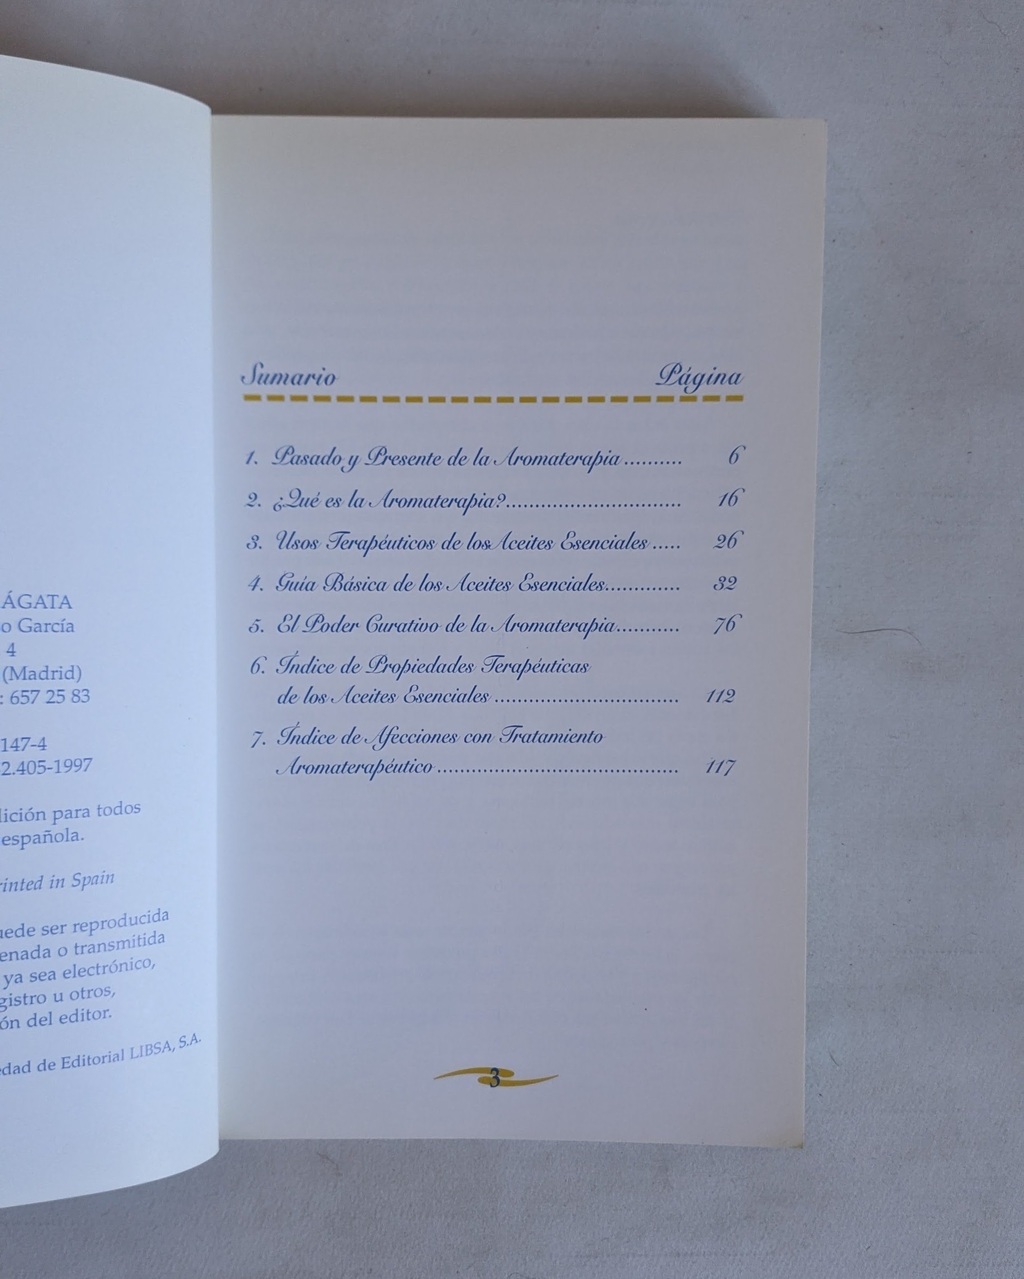 ÁGATA
o García
4
(Madrid)
: 657 25 83
147-4
2.405-1997
dición para todos
española.
rinted in Spain
uede ser reproducida
enada o transmitida
ya sea electrónico,
gistro u otros,
ón del editor.
edad de Editorial LIBSA, S.A.
Sumario Página
1. Pasado y Presente de la Aromaterapia .......... 6
2. ¿Qué es la Aromaterapia?.............................. 16
3. Usos Terapéuticos de los Aceites Esenciales ..... 26
4. Guía Básica de los Aceites Esenciales............. 32
5. El Poder Curativo de la Aromaterapia........... 76
6. Índice de Propiedades Terapéuticas
de los Aceites Esenciales ................................ 112
7. Índice de Afecciones con Tratamiento
Aromaterapéutico.......................................... 117
3